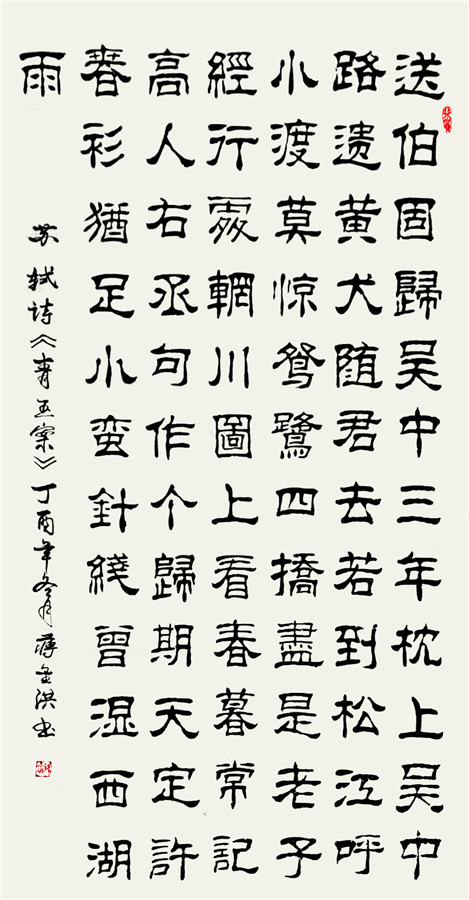 送伯固歸吴中三年枕上吴中
路遗黄犬随君去若到松江呼
小渡莫惊鴛鷺四橋盡是老子
經行處輞川圖上看春暮常記
高人右丞句作个歸期天定許
春衫猶足小蛮針綫曾湿西湖
雨
苏轼诗《青玉案》丁酉年冬月蒋洪书